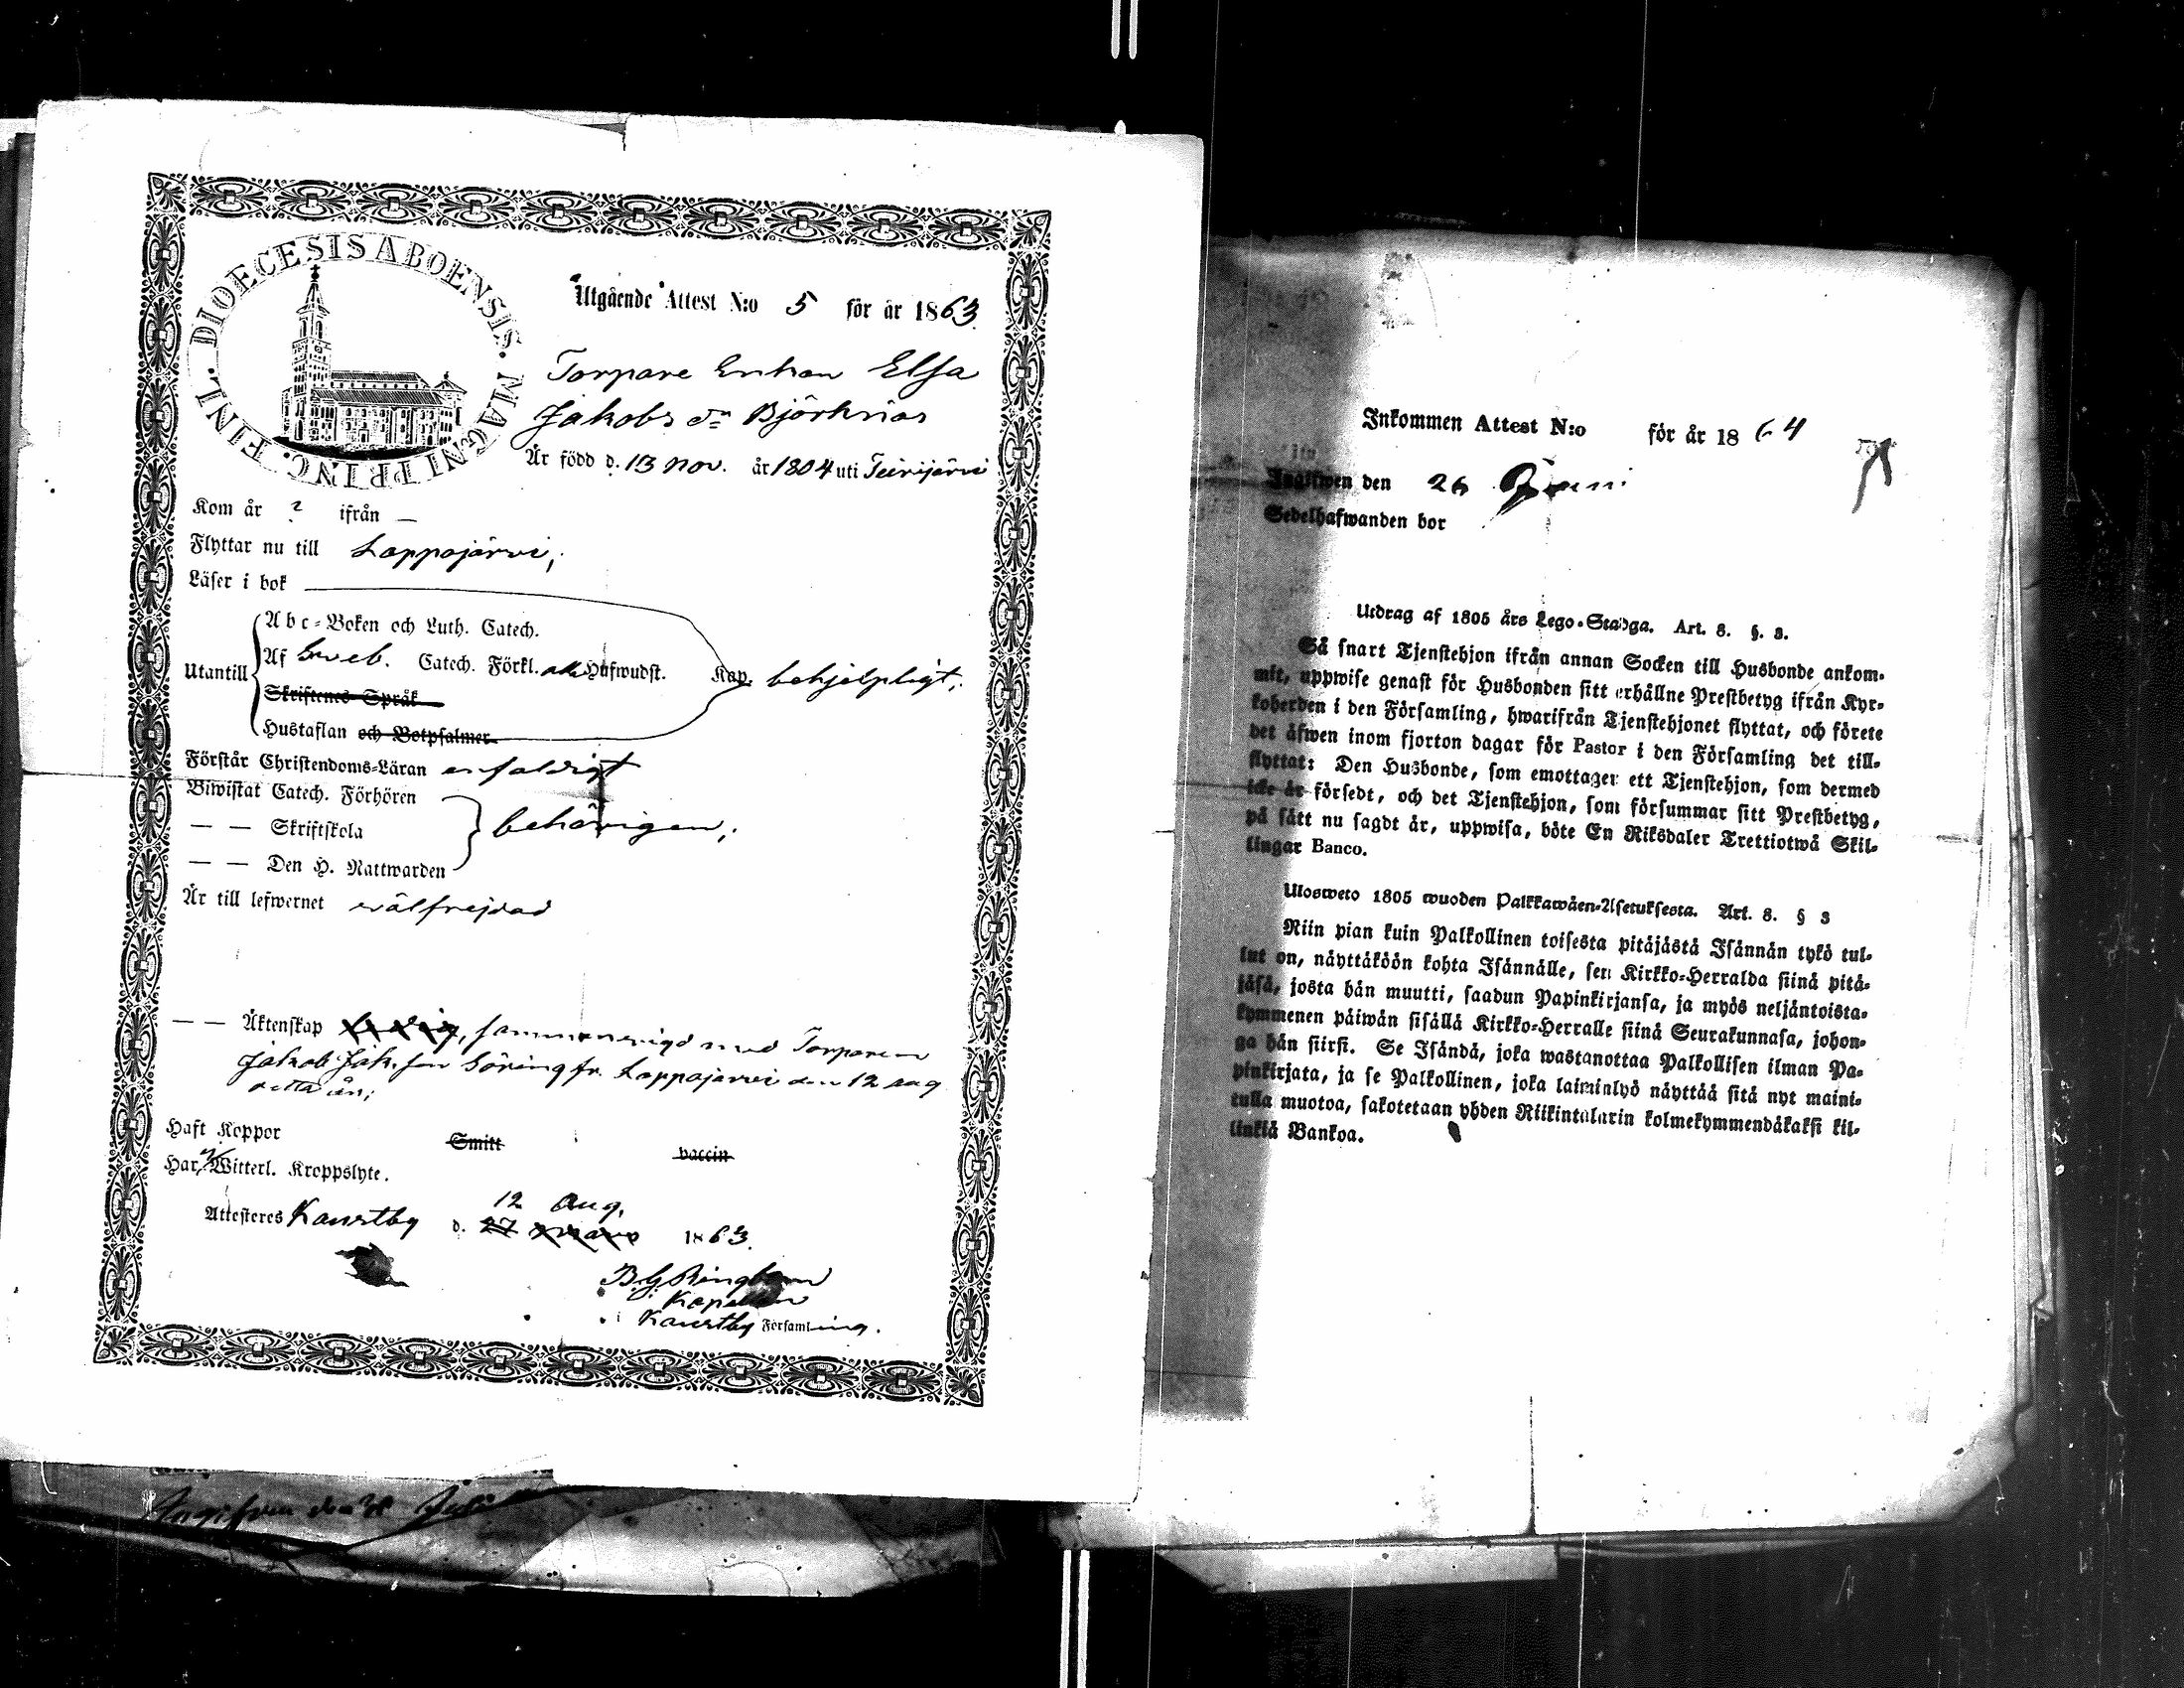 DIOECESIS ABOENSIS. MAGNI PRINC. FINL.
Utgående Attest N:o 5 för år 1863.
Torpare Enkan Elsa
Jakobs dr Björknäs
Är född d. 13 nov. år 1804 uti Teirijärvi
Kom år ? ifrån —
Flyttar nu till Lappajärvi;
Läser i bok
Utantill
Abc-Boken och Luth. Catech.
Af Sveb. Catech. Förkl. alla Hufwudst. Kap. behjelpligt;
Skriftenes Språk
Hustaflan och Botpsalmer
Förstår Christendoms-Läran enfaldigt
Biwistat Catech. Förhören
— — Skriftskola behörigen;
— — Den H. Nattwarden
Är till lefwernet välfrejdad
— — Äktenskap ledig, sammanvigd med Torparen
Jakob Jak. son Söring fr. Lappajärvi den 12 aug
detta år;
Haft Koppor Smitt vaccin
Har Witterl. Kroppslyte.
12 Aug.
Attesteres Kaustby d. 27 mars 1863.
B. G. Ringbom
Kapellan
Kaustby Församling.
Ingifven den Juli
Inkommen Attest N:o för år 1864
Ingifwen den 26 Juni
Sedelhafwanden bor
Utdrag af 1805 års Lego-Stadga. Art. 8. §. 3.
Så snart Tjenstehjon ifrån annan Socken till Husbonde ankom-
mit, uppwise genast för Husbonden sitt erhållne Prestbetyg ifrån Kyr-
koherden i den Församling, hwarifrån Tjenstehjonet flyttat, och förete
det äfwen inom fjorton dagar för Pastor i den Församling det till-
flyttat: Den Husbonde, som emottager ett Tjenstehjon, som dermed
icke är försedt, och det Tjenstehjon, som försummar sitt Prestbetyg,
på sätt nu sagdt är, uppwisa, böte En Riksdaler Trettiotwå Skil-
lingar Banco.
Ulosweto 1805 wuoden Palkkawäen-Asetuksesta. Art. 8. § 3
Niin pian kuin Palkollinen toisesta pitäjästä Isännän tykö tul-
lut on, näyttäköön kohta Isännälle, sen Kirkko-Herralda siinä pitä-
jäsä, josta hän muutti, saadun Papinkirjansa, ja myös neljäntoista-
kymmenen päiwän sisällä Kirkko-Herralle siinä Seurakunnasa, johon-
ga hän siirsi. Se Isändä, joka wastanottaa Palkollisen ilman Pa-
pinkirjata, ja se Palkollinen, joka laiminlyö näyttää sitä nyt maini-
tulla muotoa, sakotetaan yhden Riikintalarin kolmekymmendäkaksi kil-
linkiä Bankoa.